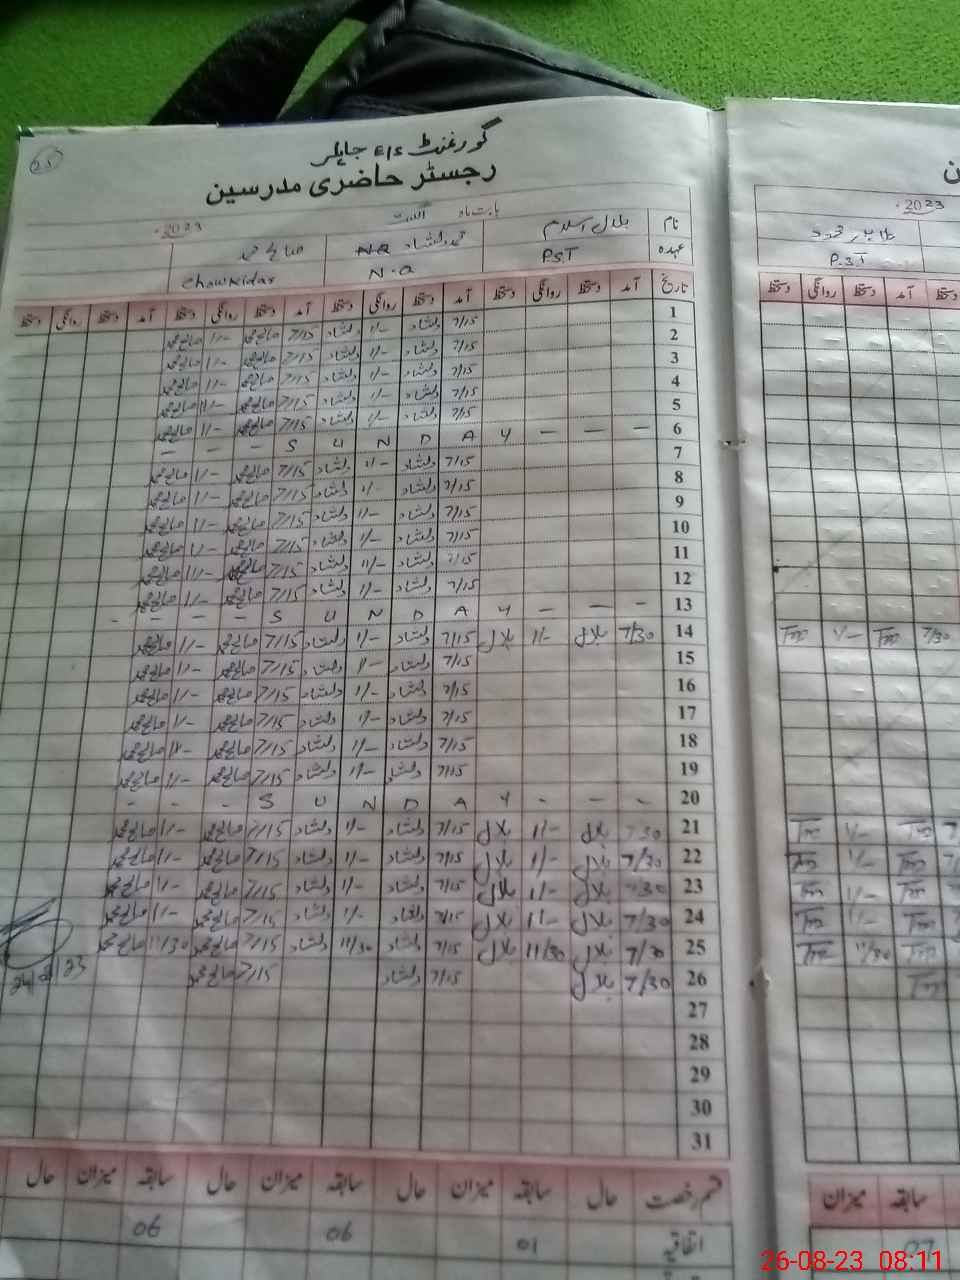 25
گورغنٹ E/S جاہلر
رجسٹر حاضری مدرسین
بابت ماہ اگست 2023
نام بلال اسلام محمد دلشاد صالح محمد
عہدہ P.S.T N.Q Chowkidar
تاریخ آمد دستخط روانگی دستخط آمد دستخط روانگی دستخط آمد دستخط روانگی دستخط آمد دستخط روانگی دستخط
1 7/15 دلشاد 1/- دلشاد 7/15 صالح محمد 1/- صالح محمد
2 7/15 دلشاد 1/- دلشاد 7/15 صالح محمد 1/- صالح محمد
3 7/15 دلشاد 1/- دلشاد 7/15 صالح محمد 1/- صالح محمد
4 7/15 دلشاد 1/- دلشاد 7/15 صالح محمد 11/- صالح محمد
5 7/15 دلشاد 1/- دلشاد 7/15 صالح محمد 1/- صالح محمد
6 - - - S U N D A Y - - -
7 7/15 دلشاد 1/- دلشاد 7/15 صالح محمد 1/- صالح محمد
8 7/15 دلشاد 1/- دلشاد 7/15 صالح محمد 1/- صالح محمد
9 7/15 دلشاد 1/- دلشاد 7/15 صالح محمد 1/- صالح محمد
10 7/15 دلشاد 1/- دلشاد 7/15 صالح محمد 1/- صالح محمد
11 7/15 دلشاد 11/- دلشاد 7/15 صالح محمد 11/- صالح محمد
12 7/15 دلشاد 1/- دلشاد 7/15 صالح محمد 1/- صالح محمد
13 - - - - S U N D A Y - - -
14 7/30 بلال 1/- بلال 7/15 دلشاد 1/- دلشاد 7/15 صالح محمد 1/- صالح محمد
15 7/15 دلشاد 1/- دلشاد 7/15 صالح محمد 1/- صالح محمد
16 7/15 دلشاد 1/- دلشاد 7/15 صالح محمد 1/- صالح محمد
17 7/15 دلشاد 1/- دلشاد 7/15 صالح محمد 1/- صالح محمد
18 7/15 دلشاد 1/- دلشاد 7/15 صالح محمد صالح محمد
19 7/15 دلشاد 1/- دلشاد 7/15 صالح محمد 1/- صالح محمد
20 - - - S U N D A Y - - -
21 7/30 بلال 1/- بلال 7/15 دلشاد 1/- دلشاد 7/15 صالح محمد 1/- صالح محمد
22 7/30 بلال 1/- بلال 7/15 دلشاد 1/- دلشاد 7/15 صالح محمد 1/- صالح محمد
23 7/30 بلال 1/- بلال 7/15 دلشاد 1/- دلشاد 7/15 صالح محمد 1/- صالح محمد
24 7/30 بلال 1/- بلال 7/15 دلشاد 1/- دلشاد 7/15 صالح محمد 1/- صالح محمد
25 7/30 بلال 11/30 بلال 7/15 دلشاد 11/30 دلشاد 7/15 صالح محمد 11/30 صالح محمد
26 7/30 بلال 7/15 دلشاد 7/15 صالح محمد
27
28
29
30
31
قسم رخصت حال سابقہ میزان حال سابقہ میزان حال سابقہ میزان حال
اتفاقیہ 01 06 06
2023
P.S.T
دستخط آمد دستخط روانگی دستخط
7/30 1/-
1/-
1/-
1/-
1/-
11/30
سابقہ میزان
26-08-23 08:11